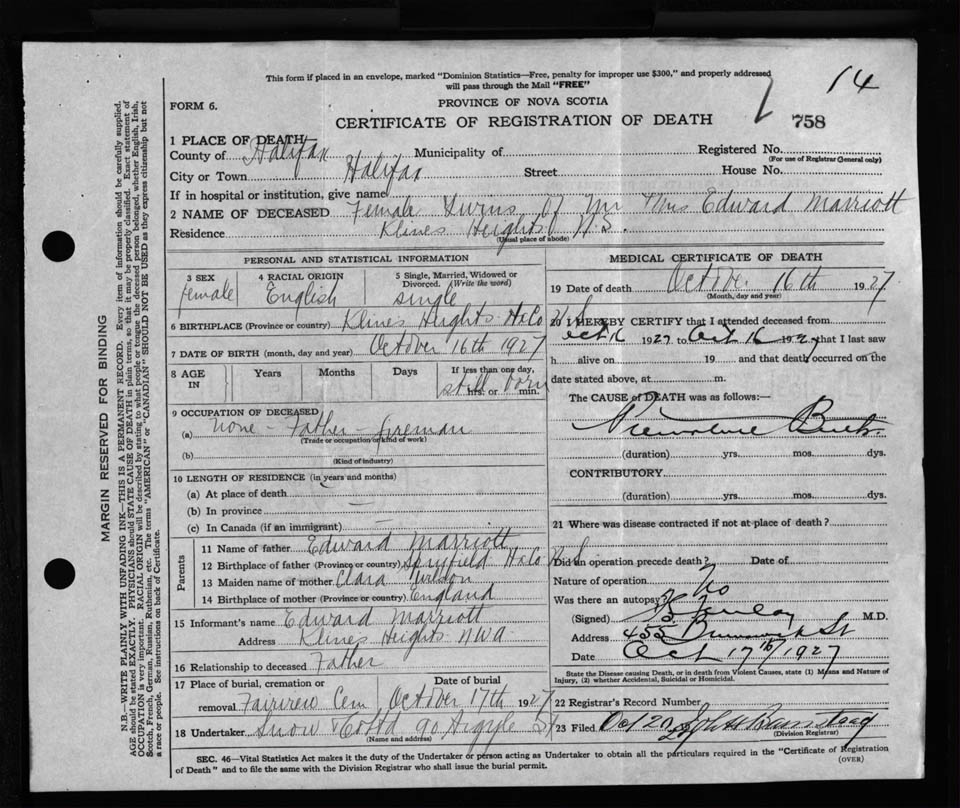 This form if placed in an envelope, marked "Dominion Statistics—Free, penalty for improper use $300," and properly addressed
will pass through the Mail "FREE"
14
FORM 6.
PROVINCE OF NOVA SCOTIA
CERTIFICATE OF REGISTRATION OF DEATH
758
1 PLACE OF DEATH
County of Halifax Municipality of Registered No.
(For use of Registrar General only)
City or Town Halifax Street House No.
If in hospital or institution, give name
2 NAME OF DECEASED Female Twins of Mr Mrs Edward Marriott
Residence Klines Heights N.S.
(Usual place of abode)
PERSONAL AND STATISTICAL INFORMATION
3 SEX 4 RACIAL ORIGIN 5 Single, Married, Widowed or
Divorced. (Write the word)
female English single
6 BIRTHPLACE (Province or country) Klines Heights Hx Co N.S.
7 DATE OF BIRTH (month, day and year) October 16th 1927
8 AGE
IN
Years Months Days If less than one day,
hrs. or min.
still born
9 OCCUPATION OF DECEASED
(a) none - Father - fireman
(Trade or occupation or kind of work)
(b)
(Kind of industry)
10 LENGTH OF RESIDENCE (in years and months)
(a) At place of death
(b) In province
(c) In Canada (if an immigrant)
Parents
11 Name of father Edward Marriott
12 Birthplace of father (Province or country) Spryfield Hx Co N.S.
13 Maiden name of mother Clara Wilson
14 Birthplace of mother (Province or country) England
15 Informant's name Edward Marriott
Address Klines Heights NWA
16 Relationship to deceased Father
17 Place of burial, cremation or Date of burial
removal Fairview Cem October 17th 1927
18 Undertaker Snow Co Ltd 90 Argyle St
(Name and address)
MEDICAL CERTIFICATE OF DEATH
19 Date of death October 16th 1927
(Month, day and year)
20 I HEREBY CERTIFY that I attended deceased from
Oct 16 1927 to Oct 16 1927 that I last saw
h alive on 19 and that death occurred on the
date stated above, at m.
The CAUSE of DEATH was as follows:—
Premature Birth
(duration) yrs. mos. dys.
CONTRIBUTORY
(duration) yrs. mos. dys.
21 Where was disease contracted if not at place of death?
Did an operation precede death? Date of
Nature of operation
Was there an autopsy? No
(Signed) M.D.
Address 455 Brunswick St
Date Oct 17th/1927
State the Disease causing Death, or in death from Violent Causes, state (1) Means and Nature of
Injury, (2) whether Accidental, Suicidal or Homicidal.
22 Registrar's Record Number
23 Filed Oct 20
(Division Registrar)
SEC. 46—Vital Statistics Act makes it the duty of the Undertaker or person acting as Undertaker to obtain all the particulars required in the "Certificate of Registration
of Death" and to file the same with the Division Registrar who shall issue the burial permit.
(OVER)
MARGIN RESERVED FOR BINDING
N.B.—WRITE PLAINLY WITH UNFADING INK—THIS IS A PERMANENT RECORD. Every item of information should be carefully supplied.
AGE should be stated EXACTLY. PHYSICIANS should STATE CAUSE OF DEATH in plain terms, so that it may be properly classified. Exact statement of
OCCUPATION is very important. RACIAL ORIGIN will be described by stating to what people or tongue the deceased person belonged, whether English, Irish,
Scotch, French, German, Russian, Ruthenian, etc. The terms "AMERICAN" or "CANADIAN" SHOULD NOT BE USED as they express citizenship but not
a race or people. See instructions on back of Certificate.